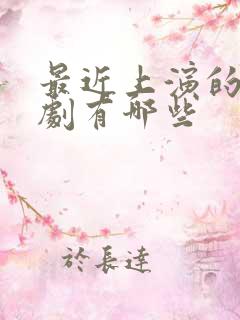 最近上演的
劇有哪些
於長達